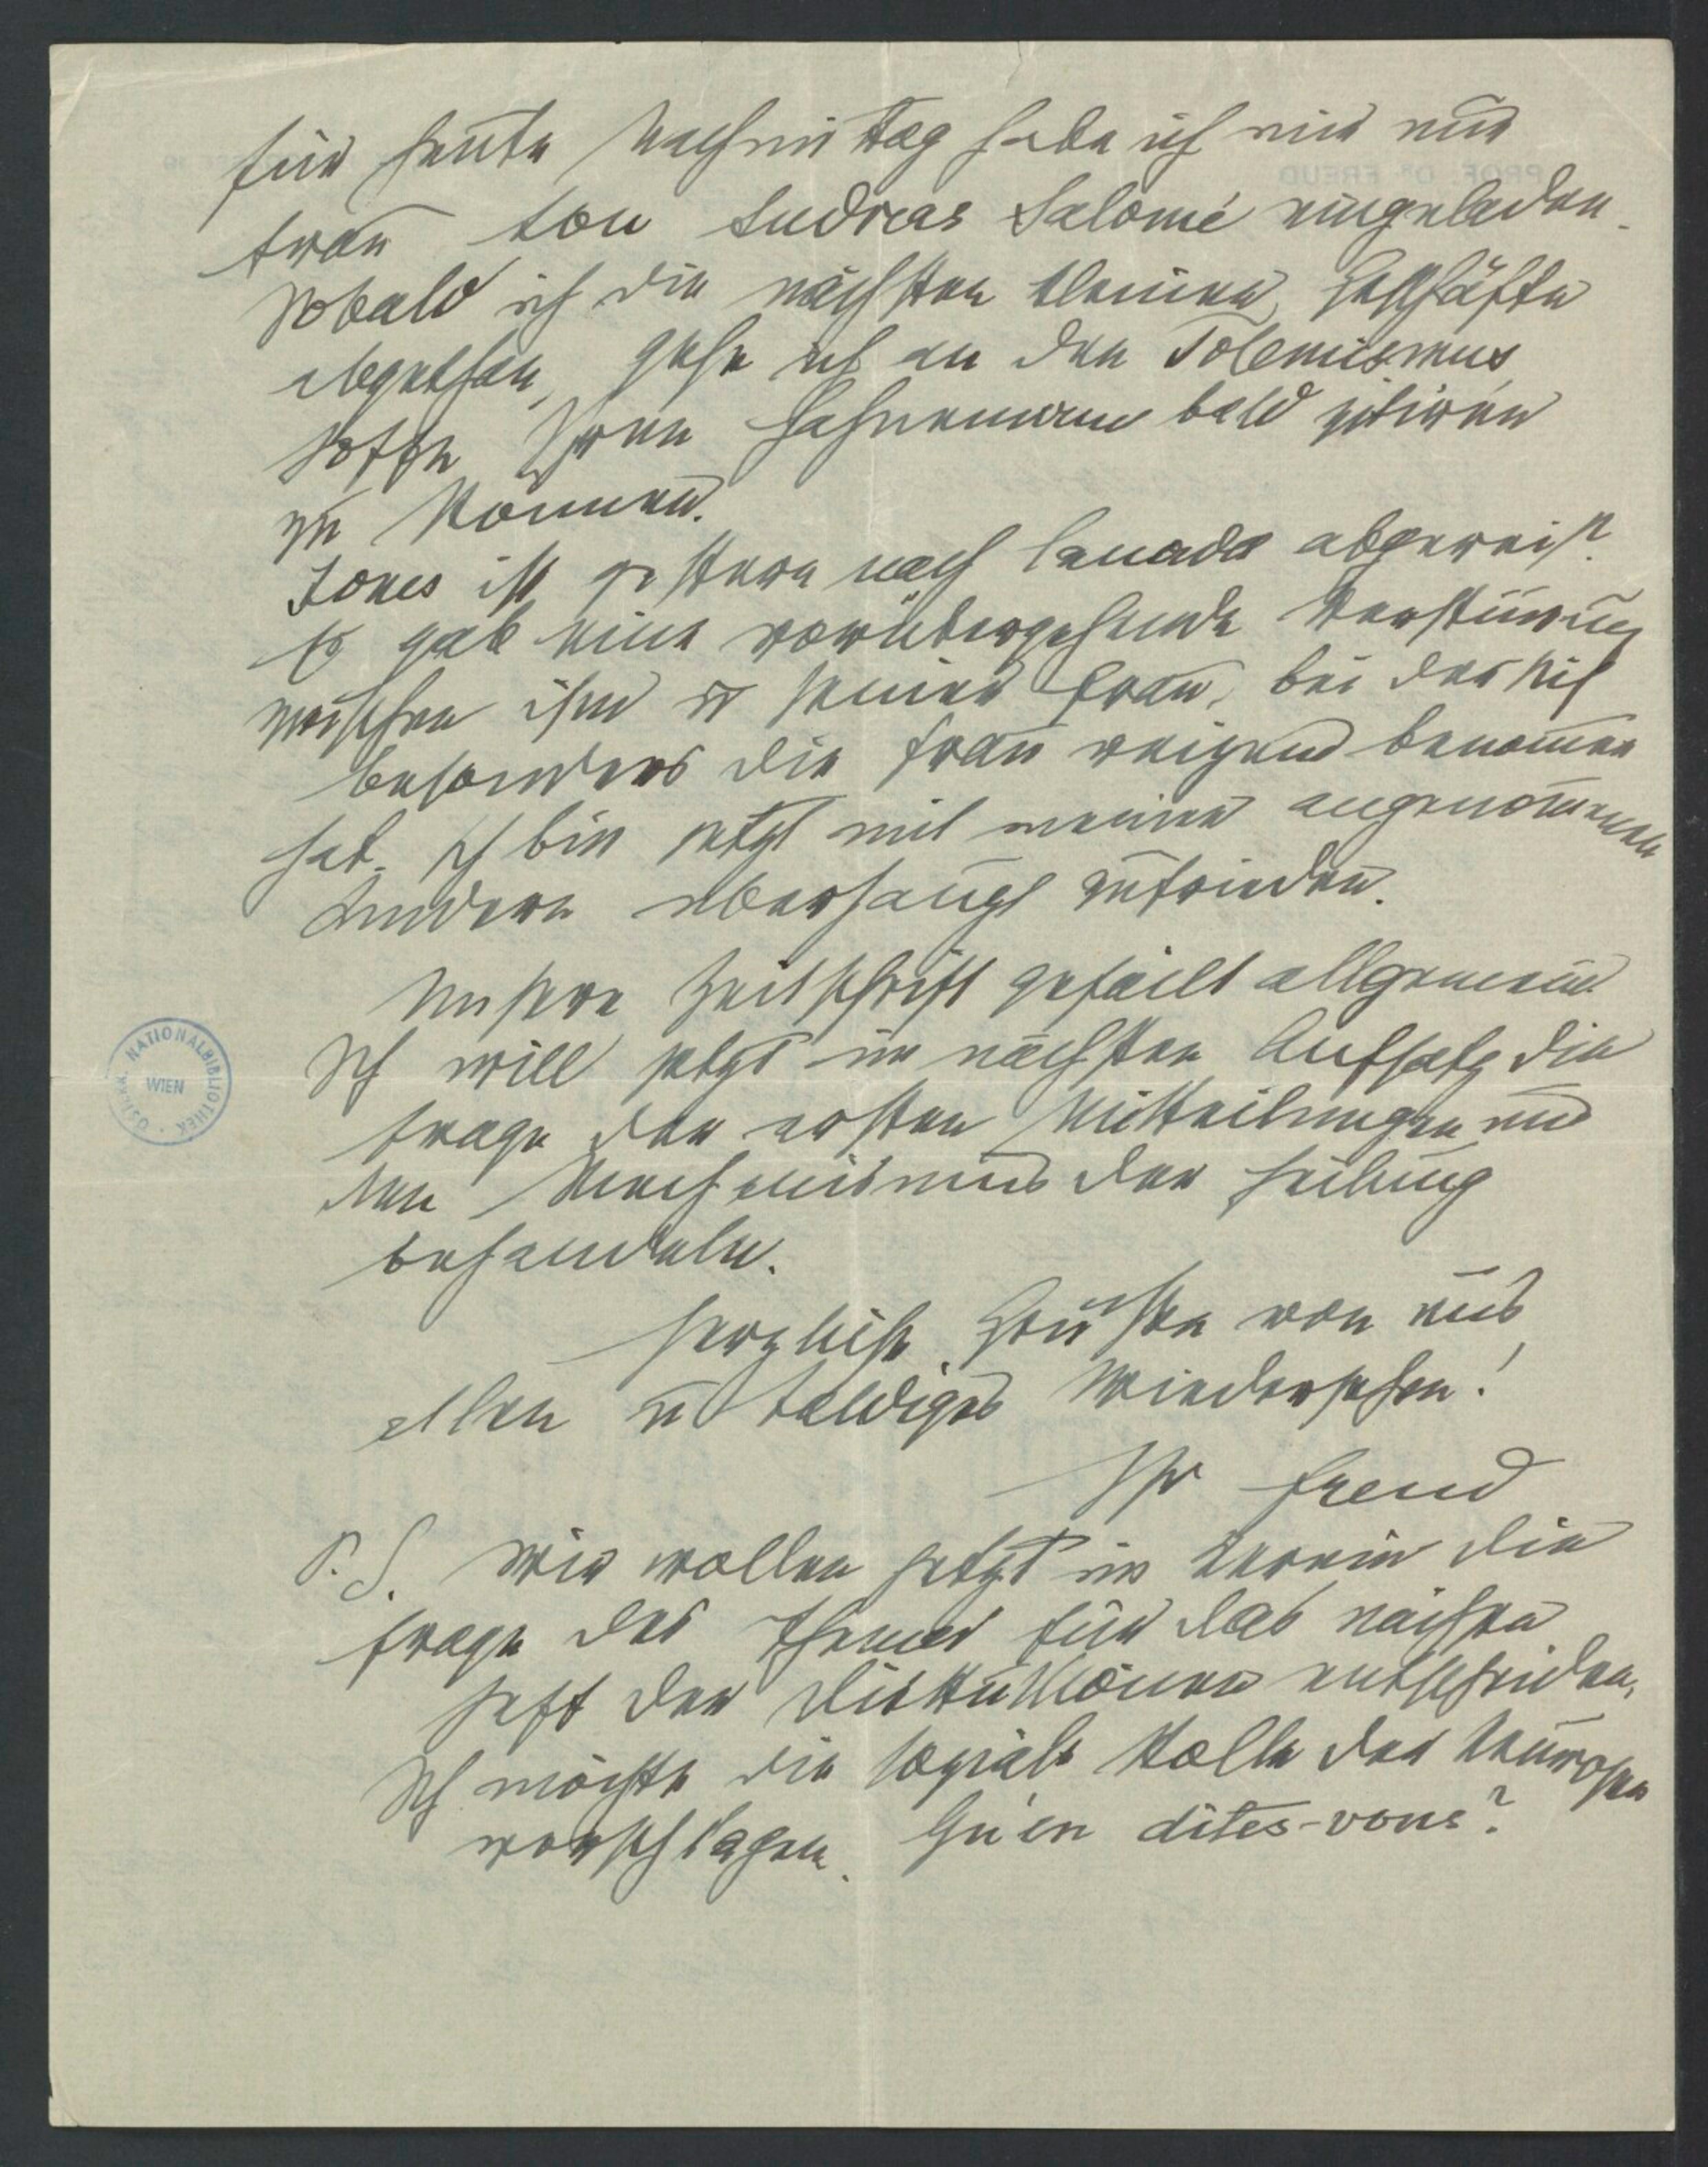 Für heute Nachmittag habe ich mir nur
Frau Lou Andreas Salomé eingeladen.
Sobald ich die nächsten kleinen Geschäfte
abgethan, gehe ich an den Totemismus
hoffe Ihren Hahnemann bald zitiren
zu können.
Jones ist gestern nach Canada abgereist.
Es gab eine vorübergehende Verstimmung
zwischen ihm u seiner Frau, bei der sich
besonders die Frau reizend benommen
hat. Ich bin jetzt mit meinen angenommenen
Kindern überhaupt zufrieden.
Unsere Zeitschrift gefällt allgemein.
Ich will jetzt im nächsten Aufsatz die
Frage der ersten Mitteilungen und
den Mechanismus der Heilung
behandeln.
Herzliche Grüße von uns
allen u baldiges Wiedersehen!
Ihr Freud
P.S. Wir wollen jetzt im Verein die
Frage des Themas für das nächste
Heft der Diskussionen entscheiden.
Ich möchte die soziale Rolle der Neurosen
vorschlagen. Qu'en dites-vous?
PROF. DR. FREUD
ÖSTERR. NATIONALBIBLIOTHEK
WIEN